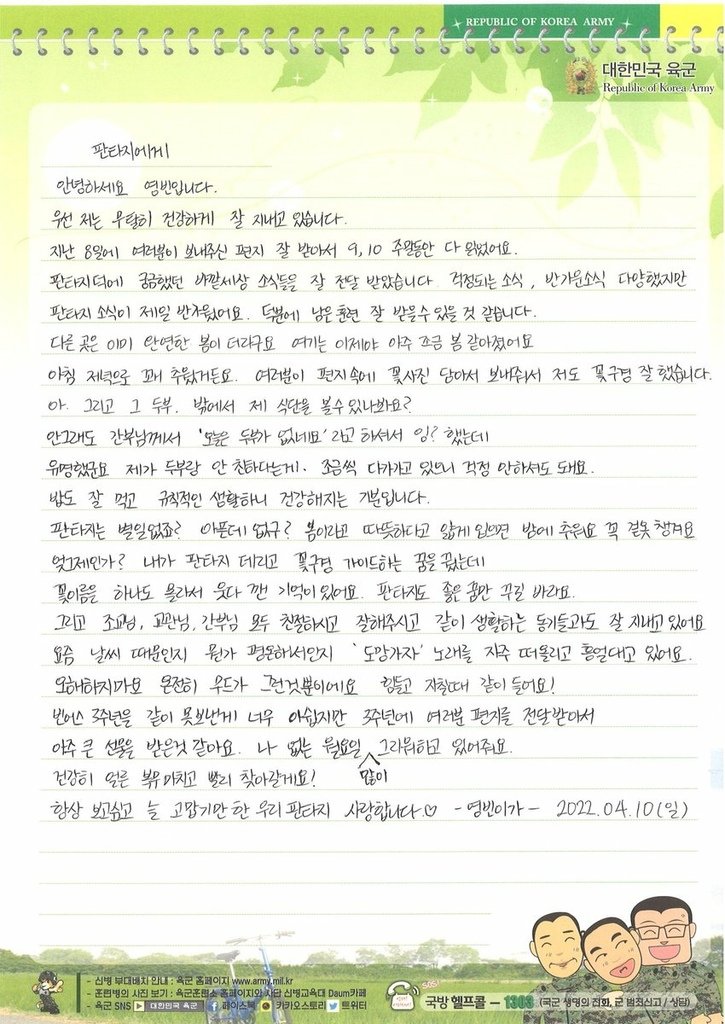 REPUBLIC OF KOREA ARMY
대한민국 육군
Republic of Korea Army
판타지에게
안녕하세요 영빈입니다.
우선 저는 무탈히 건강하게 잘 지내고 있습니다.
지난 8일에 여러분이 보내주신 편지 잘 받아서 9, 10 주말동안 다 읽었어요.
판타지덕에 궁금했던 바깥세상 소식들을 잘 전달 받았습니다 걱정되는 소식, 반가운소식 다양했지만
판타지 소식이 제일 반가웠어요. 덕분에 남은 훈련 잘 받을수 있을 것 같습니다.
다른 곳은 이미 완연한 봄이 더라구요 여기는 이제야 아주 조금 봄 같아졌어요
아침 저녁으로 꽤 추웠거든요. 여러분이 편지속에 꽃사진 담아서 보내줘서 저도 꽃구경 잘 했습니다.
아. 그리고 그 두부. 밖에서 제 식단을 볼수 있나봐요?
안그래도 간부님께서 '오늘은 두부가 없네요' 라고 하셔서 잉? 했는데
유명했군요 제가 두부랑 안 친하다는게. 조금씩 다가가고 있으니 걱정 안하셔도 돼요.
밥도 잘 먹고 규칙적인 생활하니 건강해지는 기분입니다.
판타지는 별일없죠? 아픈데 없구? 봄이라고 따뜻하다고 얇게 입으면 밤에 추워요 꼭 겉옷 챙겨요
엊그제인가? 내가 판타지 데리고 꽃구경 가이드하는 꿈을 꿨는데
꽃이름을 하나도 몰라서 웃다 깬 기억이 있어요. 판타지도 좋은 꿈만 꾸길 바라요.
그리고 조교님, 교관님, 간부님 모두 친절하시고 잘해주시고 같이 생활하는 동기들과도 잘 지내고 있어요
요즘 날씨 때문인지 뭔가 평온하서인지 '도망가자' 노래를 자주 떠올리고 흥얼대고 있어요.
오해하지마요 온전히 무드가 그런것뿐이에요 힘들고 지칠때 같이 들어요!
빈어스 3주년을 같이 못보낸게 너무 아쉽지만 3주년에 여러분 편지를 전달받아서
아주 큰 선물을 받은것 같아요. 나 없는 월요일 많이 그리워하고 있어줘요.
건강히 얼른 복무 마치고 빨리 찾아갈게요!
항상 보고싶고 늘 고맙기만 한 우리 판타지 사랑합니다♡ - 영빈이가 - 2022.04.10(일)
- 신병 부대배치 안내 : 육군 홈페이지 www.army.mil.kr
- 훈련병의 사진 보기 : 육군훈련소 홈페이지와 사단 신병교육대 Daum카페
- 육군 SNS ▶ 대한민국 육군 페이스북 카카오스토리 트위터
SOS! 국방 헬프콜 - 1303 (국군 생명의 전화, 군 범죄신고 / 상담)